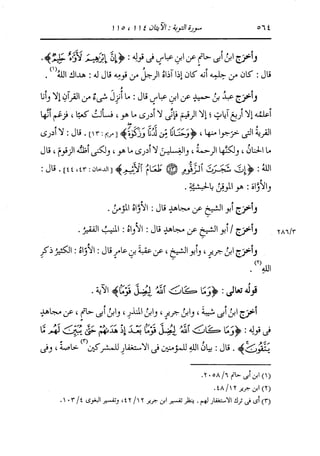 ٥٦٤ سورة التوبة : الآيتان ١١٤، ١١٥
وأخرج ابنُ أبى حاتمٍ عن ابنِ عباسٍ فى قولِه : ﴿إِنَّ إِبْرَاهِيمَ لَأَوَّاهٌ حَلِيمٌ﴾ .
قال : كان من حِلمِه أنه كان إذا آذاه الرجلُ من قومِه قال له : هداك اللهُ(١) .
وأخرج عبدُ بنُ حميدٍ عن ابنِ عباسٍ قال : ما أُنزِل شىءٌ من القرآنِ إلا وأنا
أعلمُه إلا أربعَ آياتٍ ؛ إلا الرقيمَ فإنِّى لا أدرى ما هو ، فسألتُ كعبًا ، فزعَم أنَّها
القريةُ التى خرَجوا منها ، ﴿وَحَنَانًا مِّن لَّدُنَّا وَزَكَوٰةً﴾ [مريم: ١٣] . قال : لا أدرى
ما الحنانُ ، ولكنَّها الرحمةُ ، والغِسلينَ لا أدرى ما هو ، ولكنى أظنُّه الزقومَ ، قال
اللهُ : ﴿إِنَّ شَجَرَتَ الزَّقُّومِ (٤٣) طَعَامُ الْأَثِيمِ﴾ [الدخان: ٤٣، ٤٤] . قال :
والأوَّاهُ : هو الموقنُ بالحبشيةِ .
وأخرَج أبو الشيخِ عن مجاهدٍ قال : الأوَّاهُ المؤمنُ .
٢٨٦/٣ وأخرَج / أبو الشيخِ عن مجاهدٍ قال : الأواهُ : المنيبُ الفقيرُ .
وأخرَج ابنُ جريرٍ ، وأبو الشيخِ ، عن عقبةَ بنِ عامرٍ قال : الأوَّاهُ : الكثيرُ ذكرِ
اللهِ(٢) .
قولُه تعالى : ﴿وَمَا كَانَ اللَّهُ لِيُضِلَّ قَوْمًا﴾ الآية .
أخرَج ابنُ أبى شيبةَ ، وابنُ جريرٍ ، وابنُ المنذرِ ، وابنُ أبى حاتمٍ ، عن مجاهدٍ
فى قولِه : ﴿وَمَا كَانَ اللَّهُ لِيُضِلَّ قَوْمًا بَعْدَ إِذْ هَدَاهُمْ حَتَّىٰ يُبَيِّنَ لَهُم مَّا
يَتَّقُونَ﴾ . قال : بيانُ اللهِ للمؤمنين فى الاستغفارِ للمشركين(٣) خاصةً ، وفى
(١) ابن أبى حاتم ٢٠٥٨/٦ .
(٢) ابن جرير ٤٨/١٢ .
(٣) أى فى ترك الاستغفار لهم . ينظر تفسير ابن جرير ٤٢/١٢، وتفسير البغوى ١٠٣/٤ .